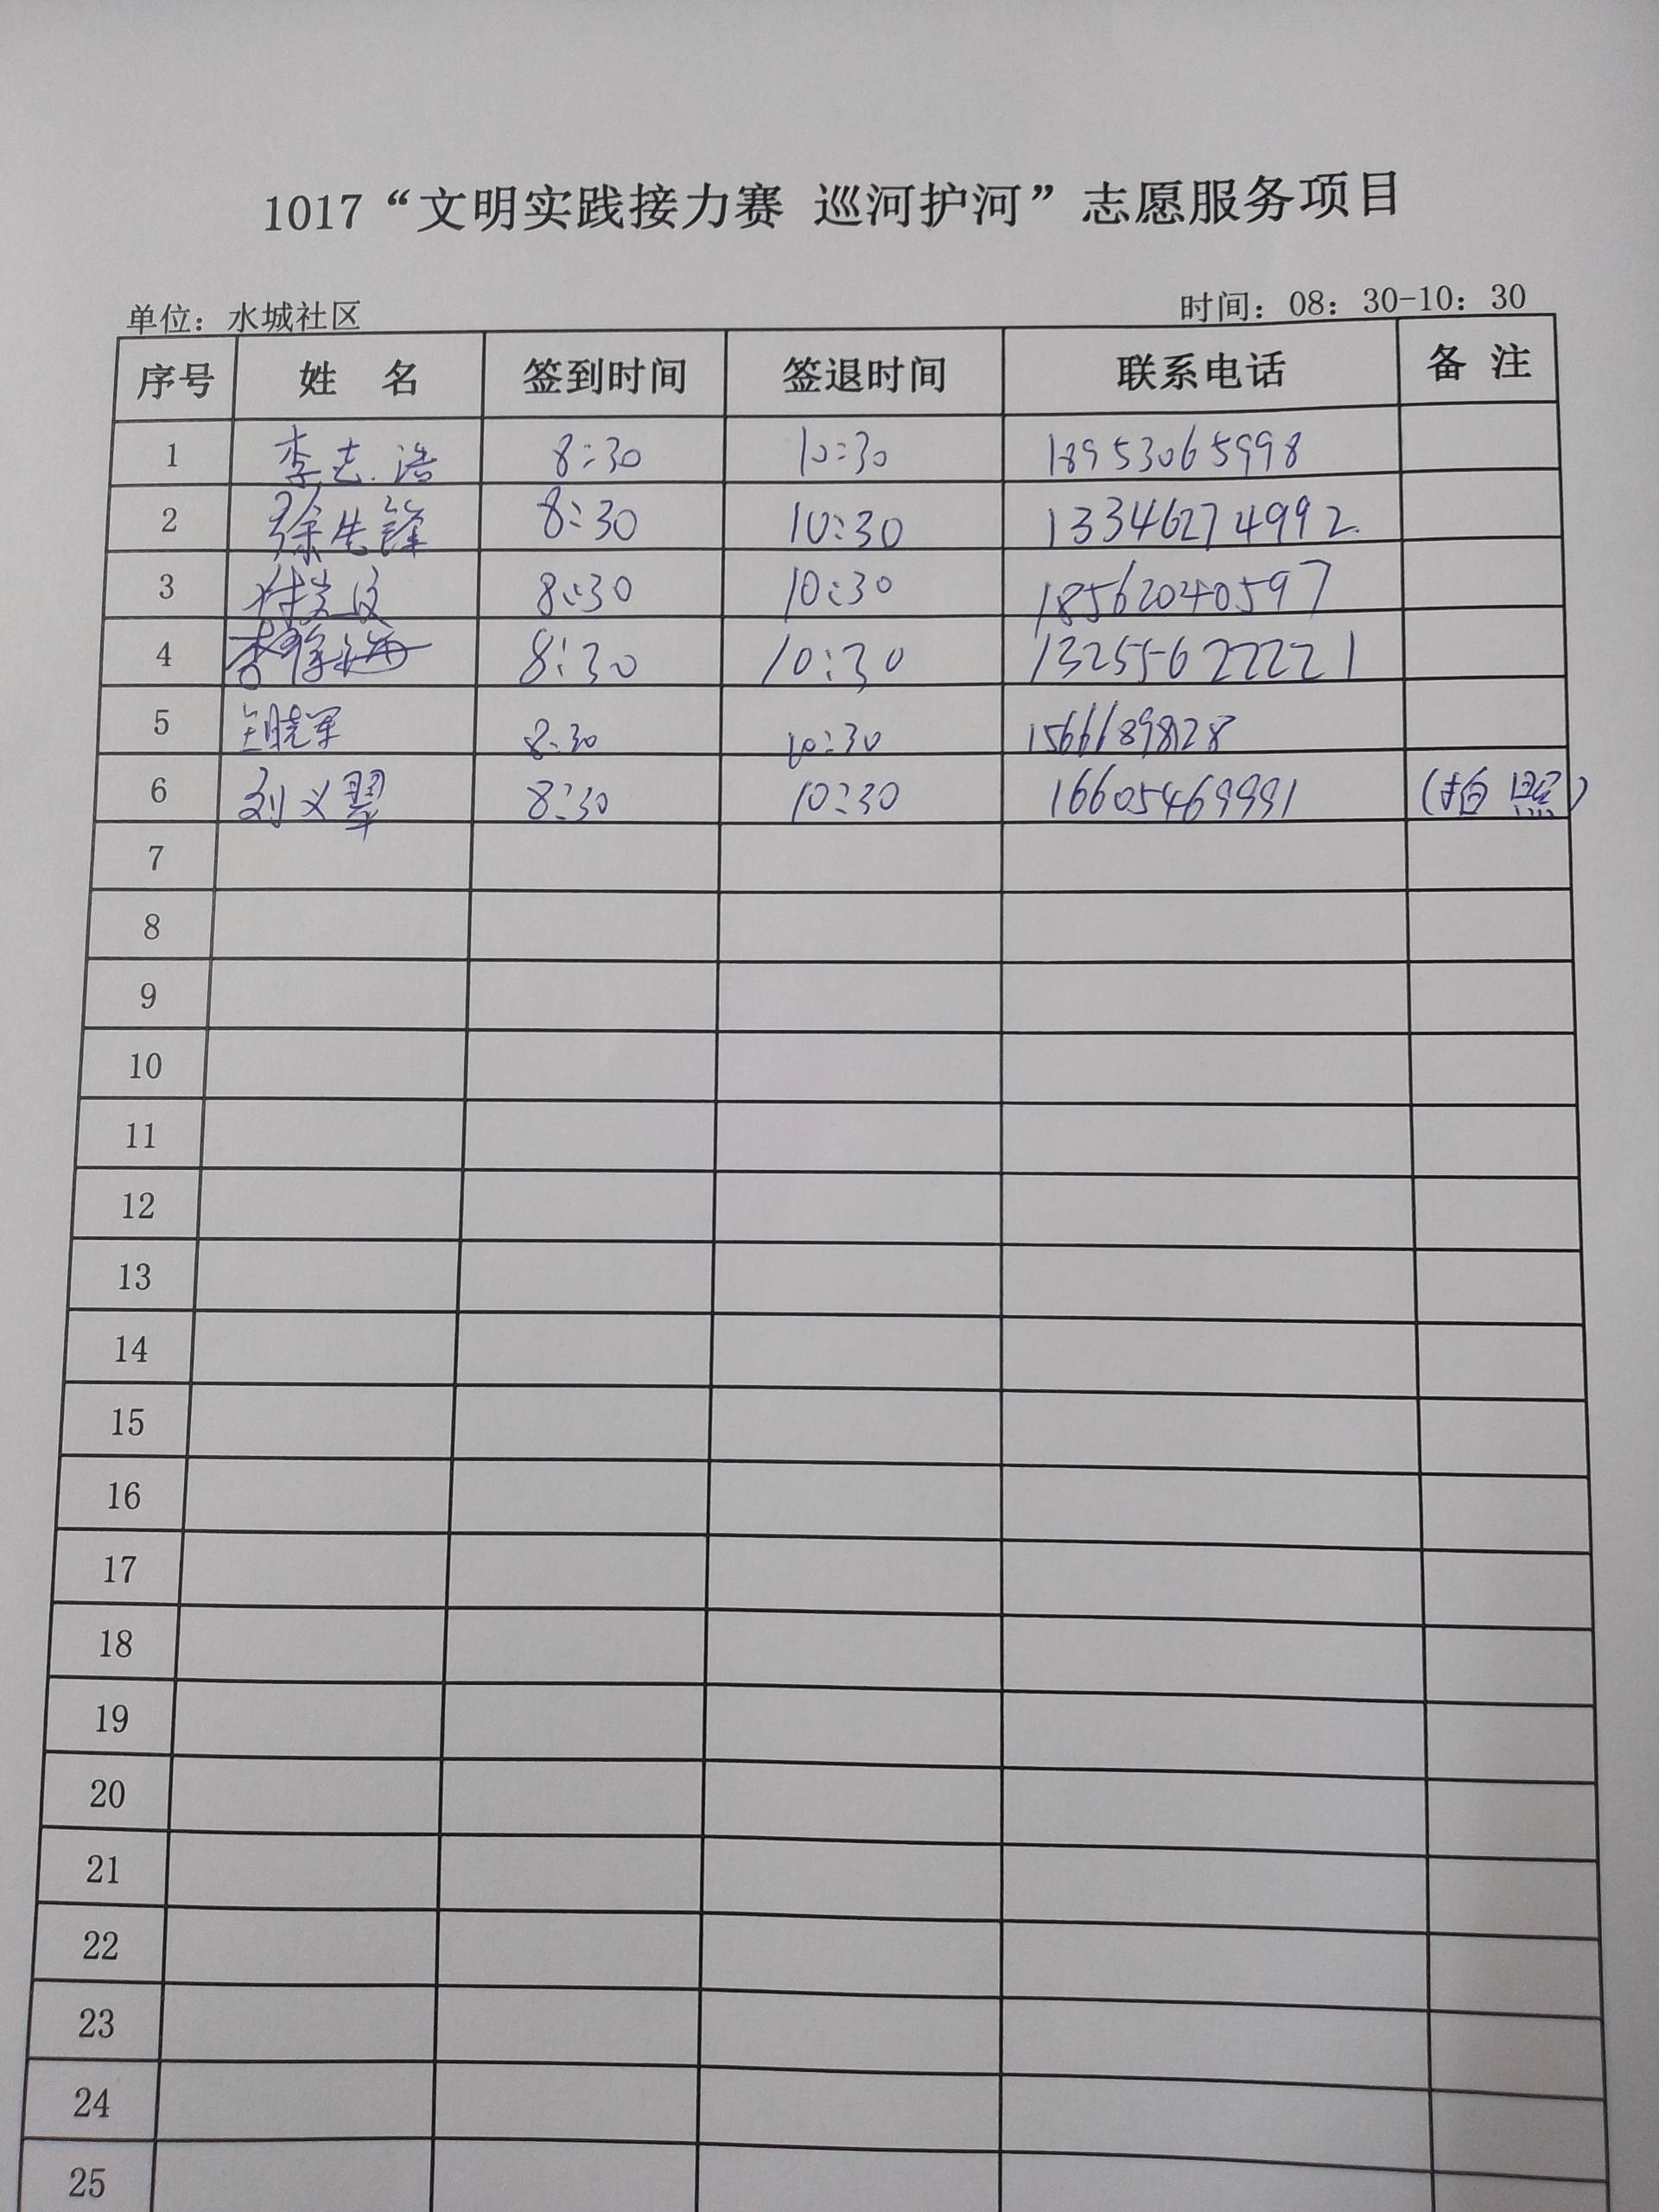 1017“文明实践接力赛 巡河护河”志愿服务项目
单位：水城社区 时间：08：30-10：30
序号 姓 名 签到时间 签退时间 联系电话 备 注
1 李志浩 8:30 10:30 18953065998
2 徐先锋 8:30 10:30 13346274992
3 8:30 10:30 18562040597
4 8:30 10:30 13255622221
5 王晓军 8:30 10:30 15666898128
6 刘义翠 8:30 10:30 16605469991 (拍照)
7
8
9
10
11
12
13
14
15
16
17
18
19
20
21
22
23
24
25